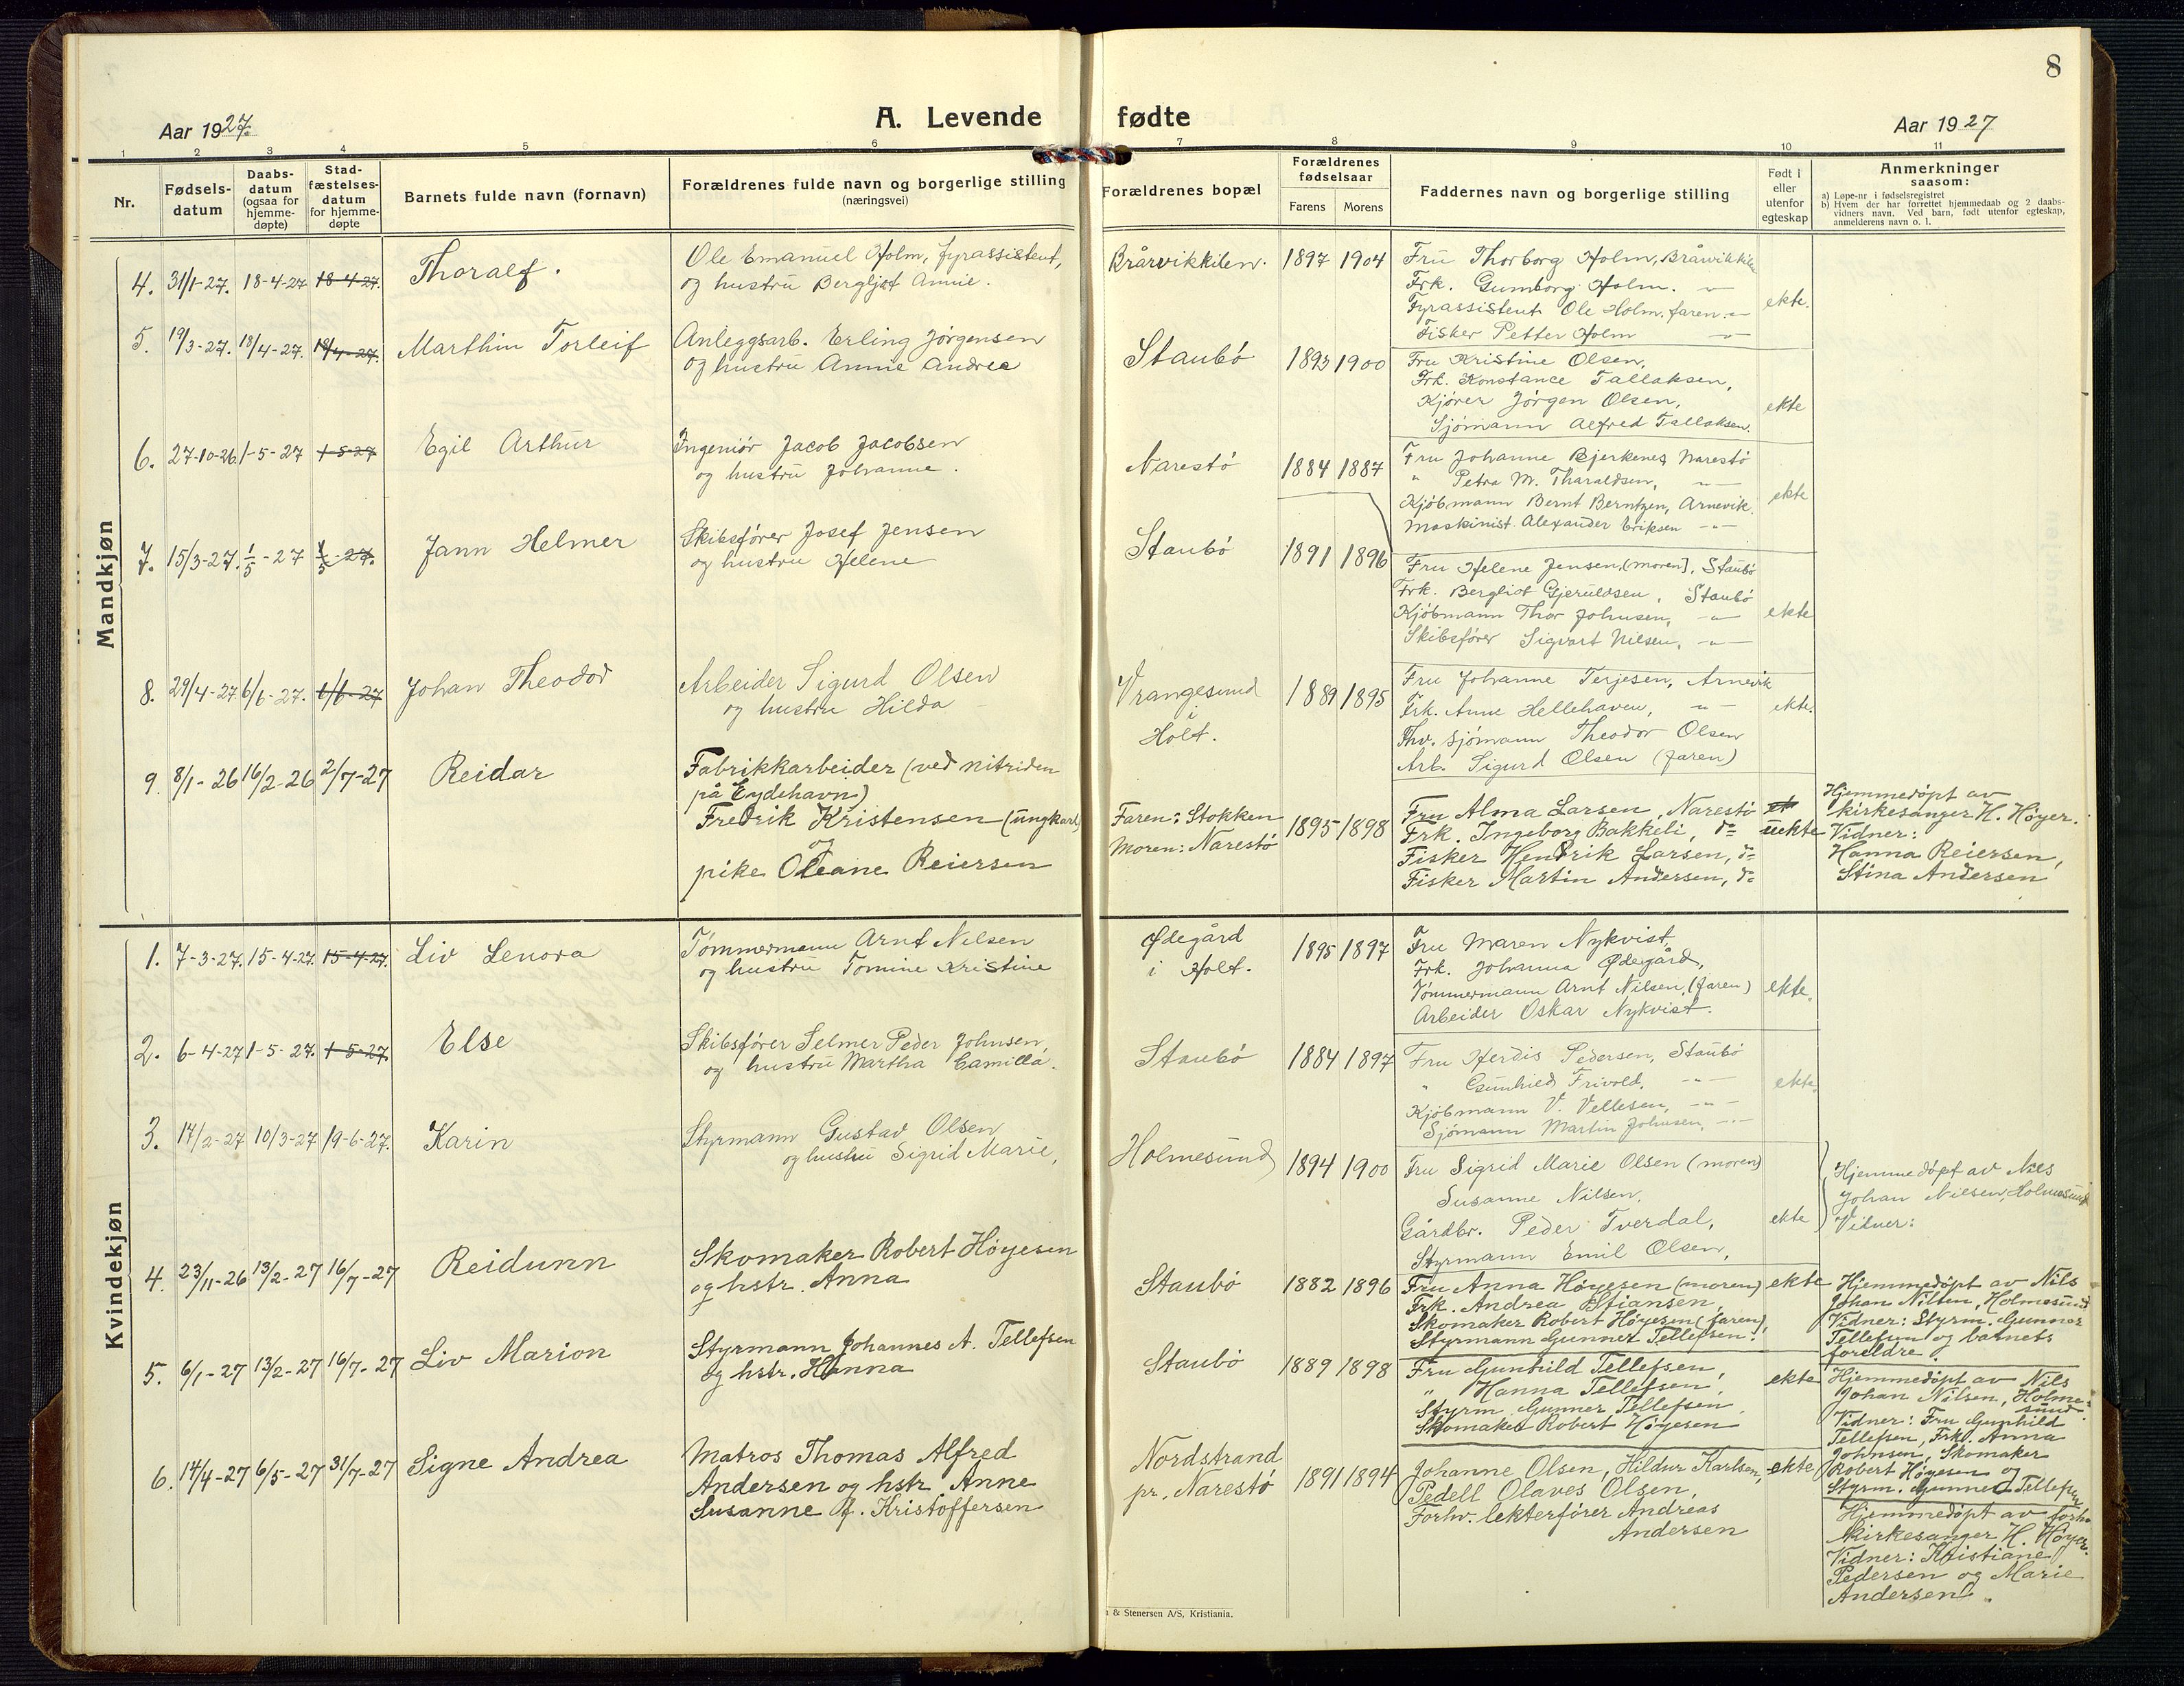 8
Aar 1927.
A. Levende fødte
Aar 1927
1 2 3 4 5 6 7 8 9 10 11
Nr.
Fødsels-
datum
Daabs-
datum
(ogsaa for
hjemme-
døpte)
Stad-
fæstelses-
datum
for hjemme-
døpte
Barnets fulde navn (fornavn)
Forældrenes fulde navn og borgerlige stilling
(næringsvei)
Forældrenes bopæl
Forældrenes
fødselsaar
Farens Morens
Faddernes navn og borgerlige stilling
Født i
eller
utenfor
egteskap
Anmerkninger
saasom:
a) Løpe-nr i fødselsregistret
b) Hvem der har forrettet hjemmedaab og 2 daabs-
vidners navn. Ved barn, født utenfor egteskap,
anmelderens navn o. l.
Mandkjøn
4. 31/1-27. 18-4-27 18-4-27. Thoralf.
Ole Emanuel Holm, fyrassistent,
og hustru Bergljot Annie.
Bråvikkilen. 1897 1904
Fru Thorborg Holm, Bråvikkilen
Frk. Gumborg Holm. -"-
Fyrassistent Ole Holm. faren -"-
Fisker Petter Holm -"-
ekte.
5. 19/3-27. 18/4-27. 18/4-27. Marthin Torleif
Anleggsarb. Erling Jörgensen
og hustru Annie Andrea
Staubö 1893 1900
Fru Kristine Olsen,
Frk. Konstance Tallaksen,
Kjörer Jörgen Olsen,
Sjömann Alfred Tallaksen.
ekte
6. 27-10-26. 1-5-27 1-5-27 Egil Arthur
Ingeniör Jacob Jacobsen
og hustru Johanne.
Narestö 1884 1887
Fru Johanne Bjerkenes Narestö
" Petra M. Tharaldsen, -"-
Kjöbmann Bernt Berntzen, Arnevik.
Maskinist Alexander Eriksen -"-
ekte
7. 15/3-27. 1/5-27 1/5-27. Jann Helmer
Skibsförer Josef Jensen
og hustru Helene
Staubö 1891 1896
Fru Helene Jensen, (moren), Staubö
Frk. Bergliot Gjeruldsen, Staubö
Kjöbmann Thor Johnsen, -"-
Skibsförer Sigvart Nilsen, -"-
ekte
8. 29/4-27 6/6-27. 6/6-27 Johan Theodor
Arbeider Sigurd Olsen
og hustru Hilda
Vrangesund
i
Holt.
1889 1895
Fru Johanne Terjesen, Arnevik
Frk. Anne Hellehaven, -"-
Fhv. sjömann Theodor Olsen
Arb. Sigurd Olsen (faren)
ekte.
9. 8/1-26 16/2-26 2/7-27 Reidar
Fabrikkarbeider (ved nitriden
på Eydehavn)
Fredrik Kristensen (ungkarl)
og
pike Oleane Reiersen
Faren: Stokken
Moren: Narestö
1895 1898
Fru Alma Larsen, Narestö
Frk. Ingeborg Bakkeli, do
Fisker Hendrik Larsen, do
Fisker Martin Andersen, do
uekte
Hjemmedöpt av
kirkesanger H. Höyer.
Vidner:
Hanna Reiersen,
Stina Andersen
Kvindekjøn
1. 7-3-27. 15-4-27. 15-4-27. Liv Lenora
Tömmermann Arnt Nilsen
og hustru Tomine Kristine
Ødegård
i Holt.
1895 1897
Fru Maren Nykvist,
Frk. Johanna Ødegård,
Tömmermann Arnt Nilsen, (faren)
Arbeider Oskar Nykvist.
ekte.
2. 6-4-27 1-5-27. 1-5-27. Else
Skibsförer Selmer Peder Johnsen,
og hustru Martha Camilla.
Staubö 1884 1897
Fru Herdis Pedersen, Staubö
" Gunhild Frivold. -"-
Kjöbmann V. Vellesen, -"-
Sjömann Martin Johnsen, -"-
ekte.
3. 14/2-27 10/3-27 19-6-27. Karin
Styrmann Gustav Olsen
og hustru Sigrid Marie,
Holmesund 1894 1900
Fru Sigrid Marie Olsen (moren)
Susanne Nilsen,
Gårdbr. Peder Tverdal,
Styrmann Emil Olsen,
ekte
Hjemmedöpt av Niels
Johan Nielsen, Holmesund
Vidner:
4. 23/11-26 13/2-27 16/7-27 Reidunn
Skomaker Robert Höyesen
og hstr. Anna
Staubö 1882 1896
Fru Anna Höyesen (moren)
Frk. Andrea Stiansen,
Skomaker Robert Höyesen (faren),
Styrmann Gunner Tellefsen.
ekte
Hjemmedöpt av Nils
Johan Nilsen, Holmesund
Vidner: Styrm. Gunner
Tellefsen og barnets
foreldre.
5. 6/1-27 13/2-27 16/7-27 Liv Marion
Styrmann Johannes A. Tellefsen
og hstr. Hanna
Staubö 1889 1898
Fru Gunhild Tellefsen,
" Hanna Tellefsen,
Styrm. Gunner Tellefsen,
Skomaker Robert Höyesen
ekte
Hjemmedöpt av Nils
Johan Nilsen, Holme-
sund.
Vidner: Fru Gunhild
Tellefsen, Frk. Anna
Johnsen, Skomaker
Robert Höyesen og
Styrm. Gunner Tellefsen
6. 14/4-27 6/5-27 31/7-27 Signe Andrea
Matros Thomas Alfred
Andersen og hstr. Anne
Susanne f. Kristoffersen
Nordstrand
pr. Narestö
1891 1894
Johanne Olsen, Hildur Karlsen,
Pedell Olaves Olsen,
Forhv. lekterförer Andreas
Andersen
ekte
Hjemmedöpt av forhv.
kirkesanger H. Höyer.
Vidner: Kristiane
Pedersen og Marie
Andersen.
& Stenersen A/S, Kristiania.